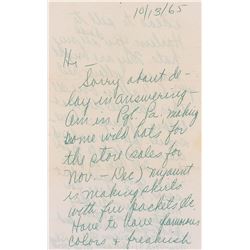 10/13/65
Hi —
Sorry about de-
lay in answering-
Am in Pgh. Pa. making
some wild hats for
the store (sales for
Nov. - Dec) my aunt
is making skirts
with fur pockets. We
have to have glamous
colors & freakish